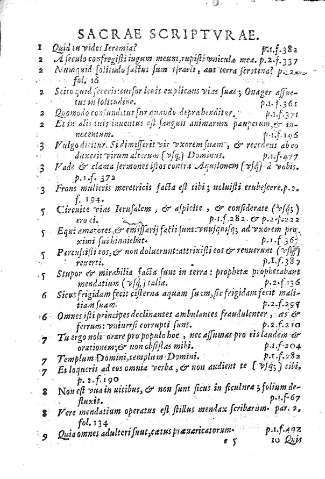 SACRAE SCRIPTVRAE.
1 Quid tu vides Ieremia? p.1.f.382
2 A seculo confregisti iugum meum, rupisti vincula mea. p.2.f.337
2 Nunquid solitudo factus sum Israeli, aut terra serotina? p.2.
fol. 16
2 Scito quod seceris: cursor leuis explicans vias suas; Onager assue-
tus in solitudine. p.1.f.361
2 Quomodo confunditur fur quando deprehenditur. p.1.f.371
2 Et in alis tuis inuentus est sanguis animarum pauperum, & in-
nocentum. p.1.f.196
3 Vulgo dicitur. Si dimiserit vir vxorem suam, & recedens ab eo
duxerit virum alterum (vsq;) Dominus. p.1.f.477
3 Vade & clama sermones istos contra Aquilonem (vsq;) à vobis.
p.1.f. 372
3 Frons mulieris meretricis facta est tibi; noluisti erubescere. p.2.
f. 194.
5 Circuite vias Ierusalem, & aspicite, & considerate (vsq;)
ei p.1.f.282. & p.2.f.222
5 Equi amatores, & emissarij facti sunt: vnusquisq; ad vxorem pro-
ximi sui hinniebat. p.1.f.367
5 Percussisti eos, & non doluerunt: attriuisti eos & renuerunt (vsq;)
reuerti. p.1.f.387
5 Stupor & mirabilia facta sunt in terra: prophetæ prophetabant
mendatium (vsq;) talia. p.2.f.136
6 Sicut frigidam fecit cisterna aquam suam, sic frigidam fecit mali-
tiam suam. p.2.f.298
6 Omnes isti principes declinantes ambulantes fraudulenter, æs &
ferrum: vniuersi corrupti sunt. p.2.f.210
7 Tu ergo noli orare pro populo hoc, nec assumas pro eis laudem &
orationem; & non obsistas mihi. p.1.f.204
7 Templum Domini, templum Domini. p.1.f.282
7 Et loqueris ad eos omnia verba, & non audient te (vsq;) cibi.
p. 2.f.190
8 Non est vua in vitibus, & non sunt ficus in ficulnea; folium de-
fluxit. p.1.f.67
8 Vere mendatium operatus est stillus mendax scribarum. par. 2.
fol. 134
9 Quia omnes adulteri sunt, cætus præuaricatorum. p.1.f.492
e 5 10 Quis